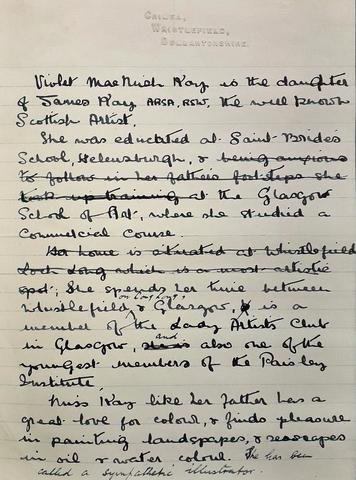 WHISTLEFIELD,
DUMBARTONSHIRE.
Violet MacNeish Kay is the daughter
of James Kay ARSA, RSW, the well known
Scottish Artist.
She was educated at Saint Bride's
School, Helensburgh, & being anxious
to follow in her father's footsteps she
took up training at the Glasgow
School of Art, where she studied a
Commercial Course.
Her home is situated at Whistlefield
Loch Long which is a most artistic
spot; She spends her time between
Whistlefield, on Loch Long, & Glasgow, & is a
member of the Lady Artists Club
in Glasgow, she is and also one of the
youngest members of the Paisley
Institute,
Miss Kay like her father has a
great love for colour, & finds pleasure
in painting landscapes, & seascapes
in oil & water colour. She has been
called a sympathetic illustrator.